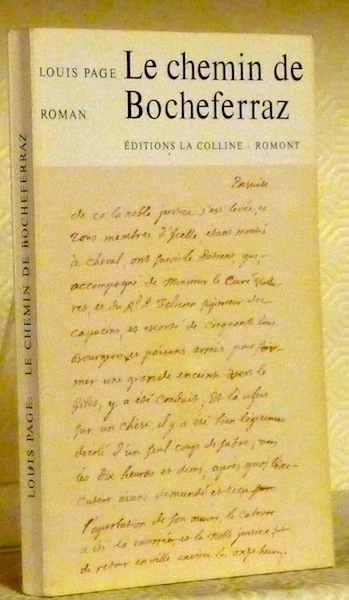 LOUIS PAGE
Le chemin de
Bocheferraz
ROMAN
ÉDITIONS LA COLLINE · ROMONT
Ensuite
de ce la noble justice s'est levée, et
Tous membres d'Icelle etans montés
à cheval, ont suivi le patient, que
accompagné de Monsieur le Curé
res, et du Rd. P. Felicien superieur des
capucins et escorté de cinquante
Bourgeois et paisans armés pour for-
mer une grande enceinte
y a été conduit, Et là assis
sur un chèse il y a été bien legerement
decolé d'un seul coup de sabre, vers
les dix heures et demi, après quoi l'exe-
cuteur aians demandé et reçu
l'aprobation de son œuvre, le cadavre
a été la et la Noble justice
de retour en ville environ les onze heures.
LOUIS PAGE: LE CHEMIN DE BOCHEFERRAZ